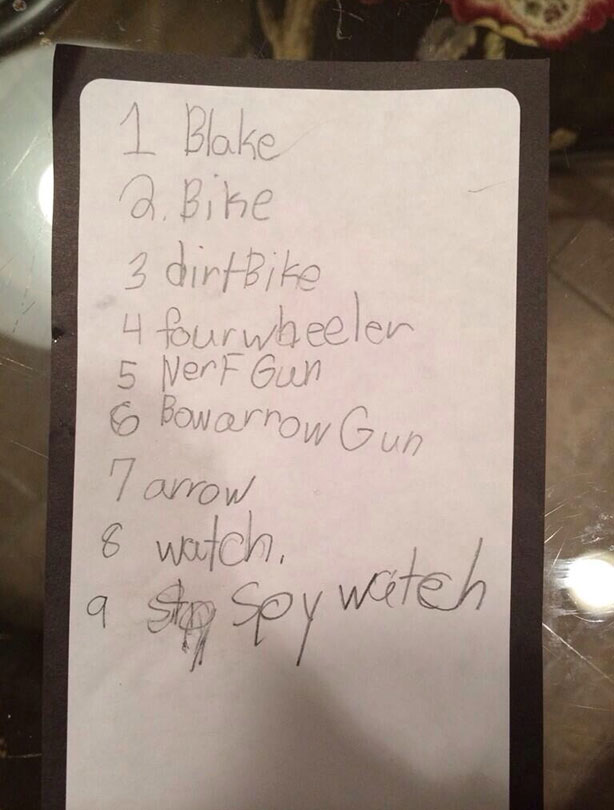 1 Blake
2. Bike
3 dirtBike
4 fourwheeler
5 NerF Gun
6 Bowarrow Gun
7 arrow
8 watch.
9 Spy watch